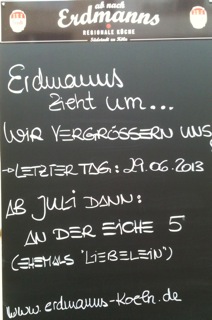 ab nach
Erdmanns
REGIONALE KÜCHE
Südstadt in Köln
Erdmanns
zieht um...
WIR VERGRÖSSERN UNS
→LETZTER TAG: 29.06.2013
AB JULI DANN:
AN DER EICHE 5
(EHEMALS "LIEBELEIN")
www.erdmanns-koeln.de